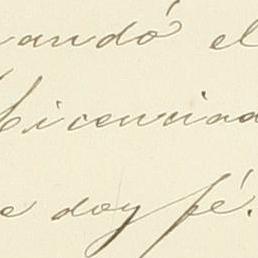 andó el
Licencia
e doy fé.